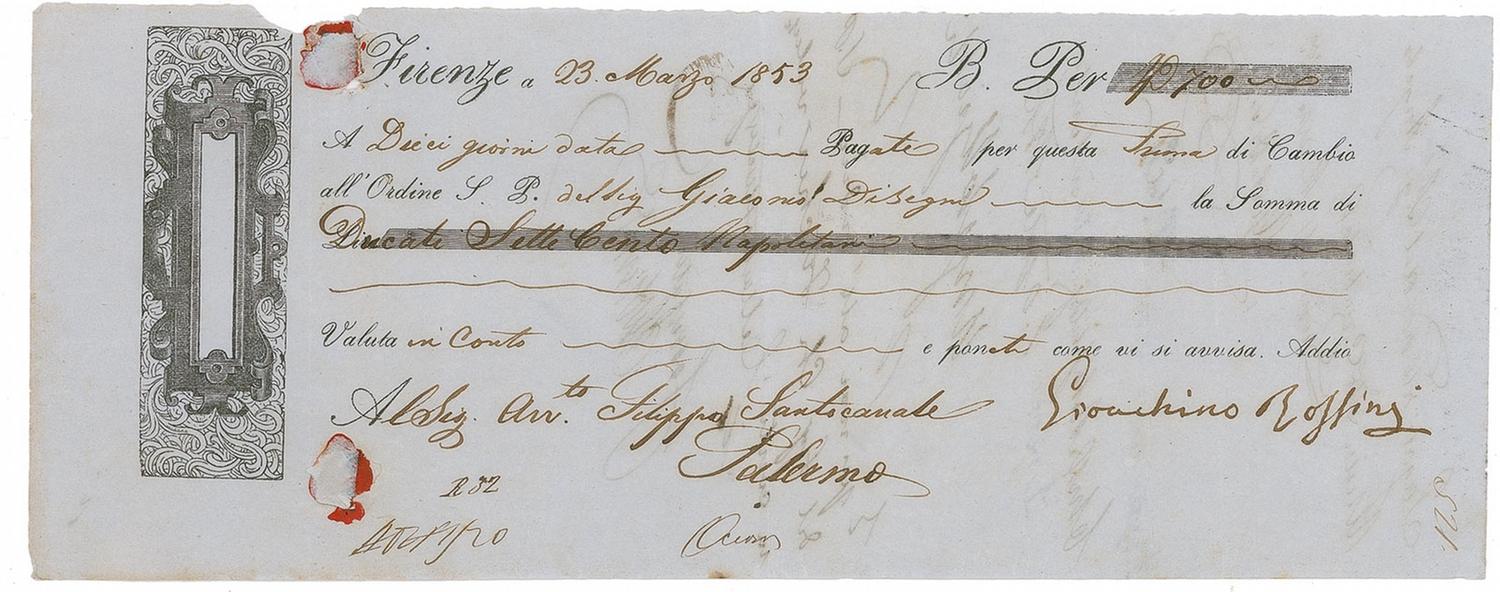 Firenze a 23. Marzo 1853 B. Per 700
A Dieci giorni data Pagate per questa Prima di Cambio
all'Ordine S. P. del Sig Giacomo Disegni la Somma di
Ducati Sette Cento Napoletani
Valuta in Conto e ponete come vi si avvisa. Addio
Al Sig. Avv.to Filippo Santocanale Giovachino Rossini
Palermo
125